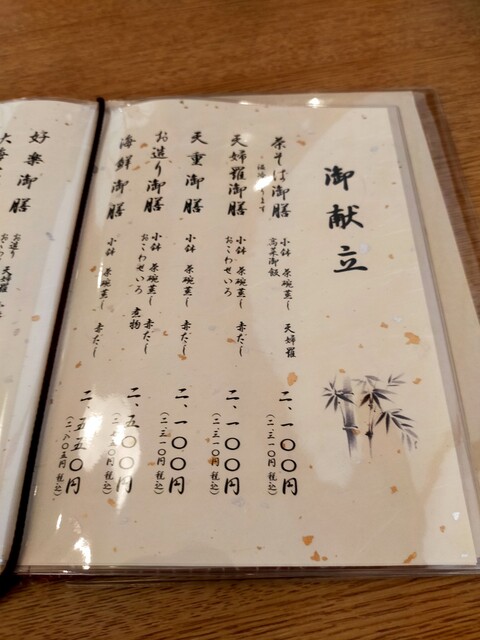 御献立
茶そば御膳
小鉢 茶碗蒸し 天婦羅
高菜御飯
二、一〇〇円
(二、三一〇円 税込)
天婦羅御膳
小鉢 茶碗蒸し 赤だし
おこわせいろ
二、一〇〇円
(二、三一〇円 税込)
天重御膳
小鉢 茶碗蒸し 赤だし
二、一〇〇円
(二、三一〇円 税込)
お造り御膳
小鉢 茶碗蒸し 赤だし
おこわせいろ 煮物
二、五〇〇円
五〇円 税込)
海鮮御膳
小鉢 茶碗蒸し 赤だし
二、五五〇円
(二、八〇五円 税込)
好楽御膳
お造り 天婦羅